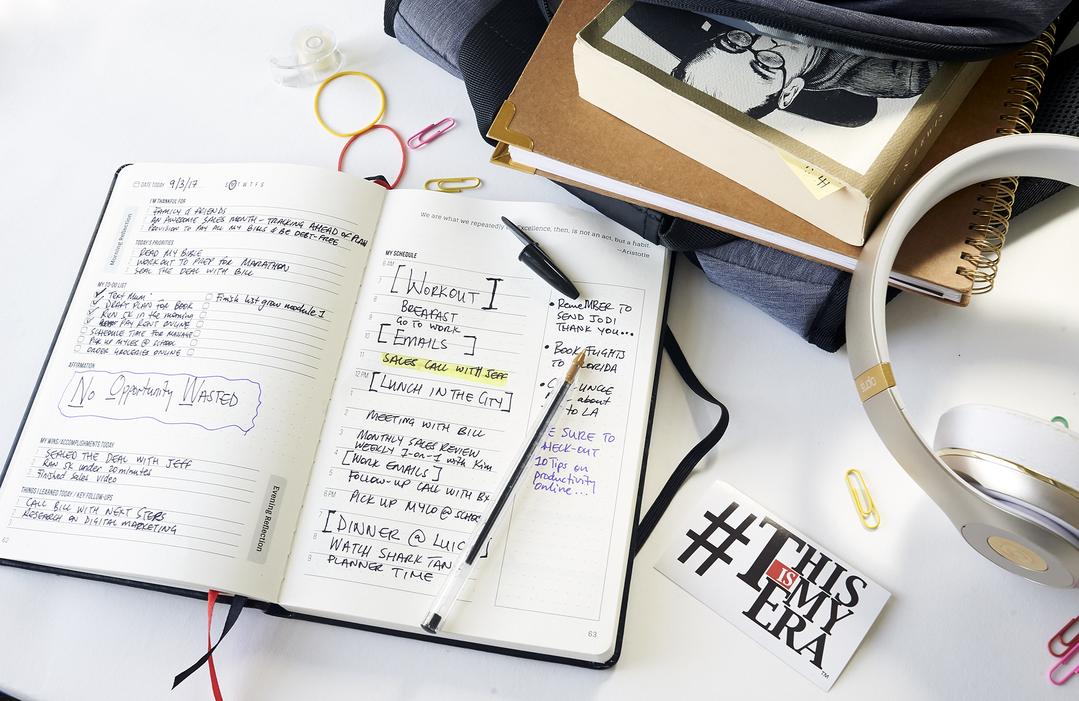 DATE TODAY 9/3/17 S M T W T F S
I'M THANKFUL FOR
FAMILY & FRIENDS
AN AWESOME SALES MONTH - TRACKING AHEAD OF PLAN
PROVISION TO PAY ALL MY BILLS & BE DEBT-FREE
Morning Reflection
TODAY'S PRIORITIES
READ MY BIBLE
WORKOUT TO PREP FOR MARATHON
SEAL THE DEAL WITH BILL
MY TO-DO LIST
TEXT MUM
DRAFT PLAN FOR BOOK
RUN 5K in the morning
PAY RENT ONLINE
SCHEDULE TIME FOR
PICK UP MYLES @ SCHOOL
ORDER GROCERIES ONLINE
Finish last grow module 1
AFFIRMATION
No Opportunity WASTED
MY WINS/ACCOMPLISHMENTS TODAY
SEALED THE DEAL WITH JEFF
RAN 5K under 20 minutes
Finished sales video
THINGS I LEARNED TODAY / KEY FOLLOW-UPS
CALL BILL WITH NEXT STEPS
RESEARCH ON DIGITAL MARKETING
Evening Reflection
62
We are what we repeatedly Excellence, then, is not an act, but a habit.
—Aristotle
MY SCHEDULE
6 AM
7
[WORKOUT]
8
BREAFAST
9
GO TO WORK
10
[EMAILS]
11
SALES CALL WITH JEFF
12 PM
[LUNCH IN THE CITY]
1
2
MEETING WITH BILL
3
MONTHLY SALES REVIEW
WEEKLY 1-on-1 with Kim
4
[WORK EMAILS]
5
FOLLOW-UP CALL WITH
6 PM
PICK UP MYLO @
7
[DINNER @
8
WATCH SHARK
9
PLANNER TIME
• RemeMBER TO
SEND JODI
THANK YOU...
• BOOK FLIGHTS
TO
• UNCLE
about
to LA
SURE TO
10 Tips on
productivity
online...
63
#THIS
IS MY
ERA
TM
studio